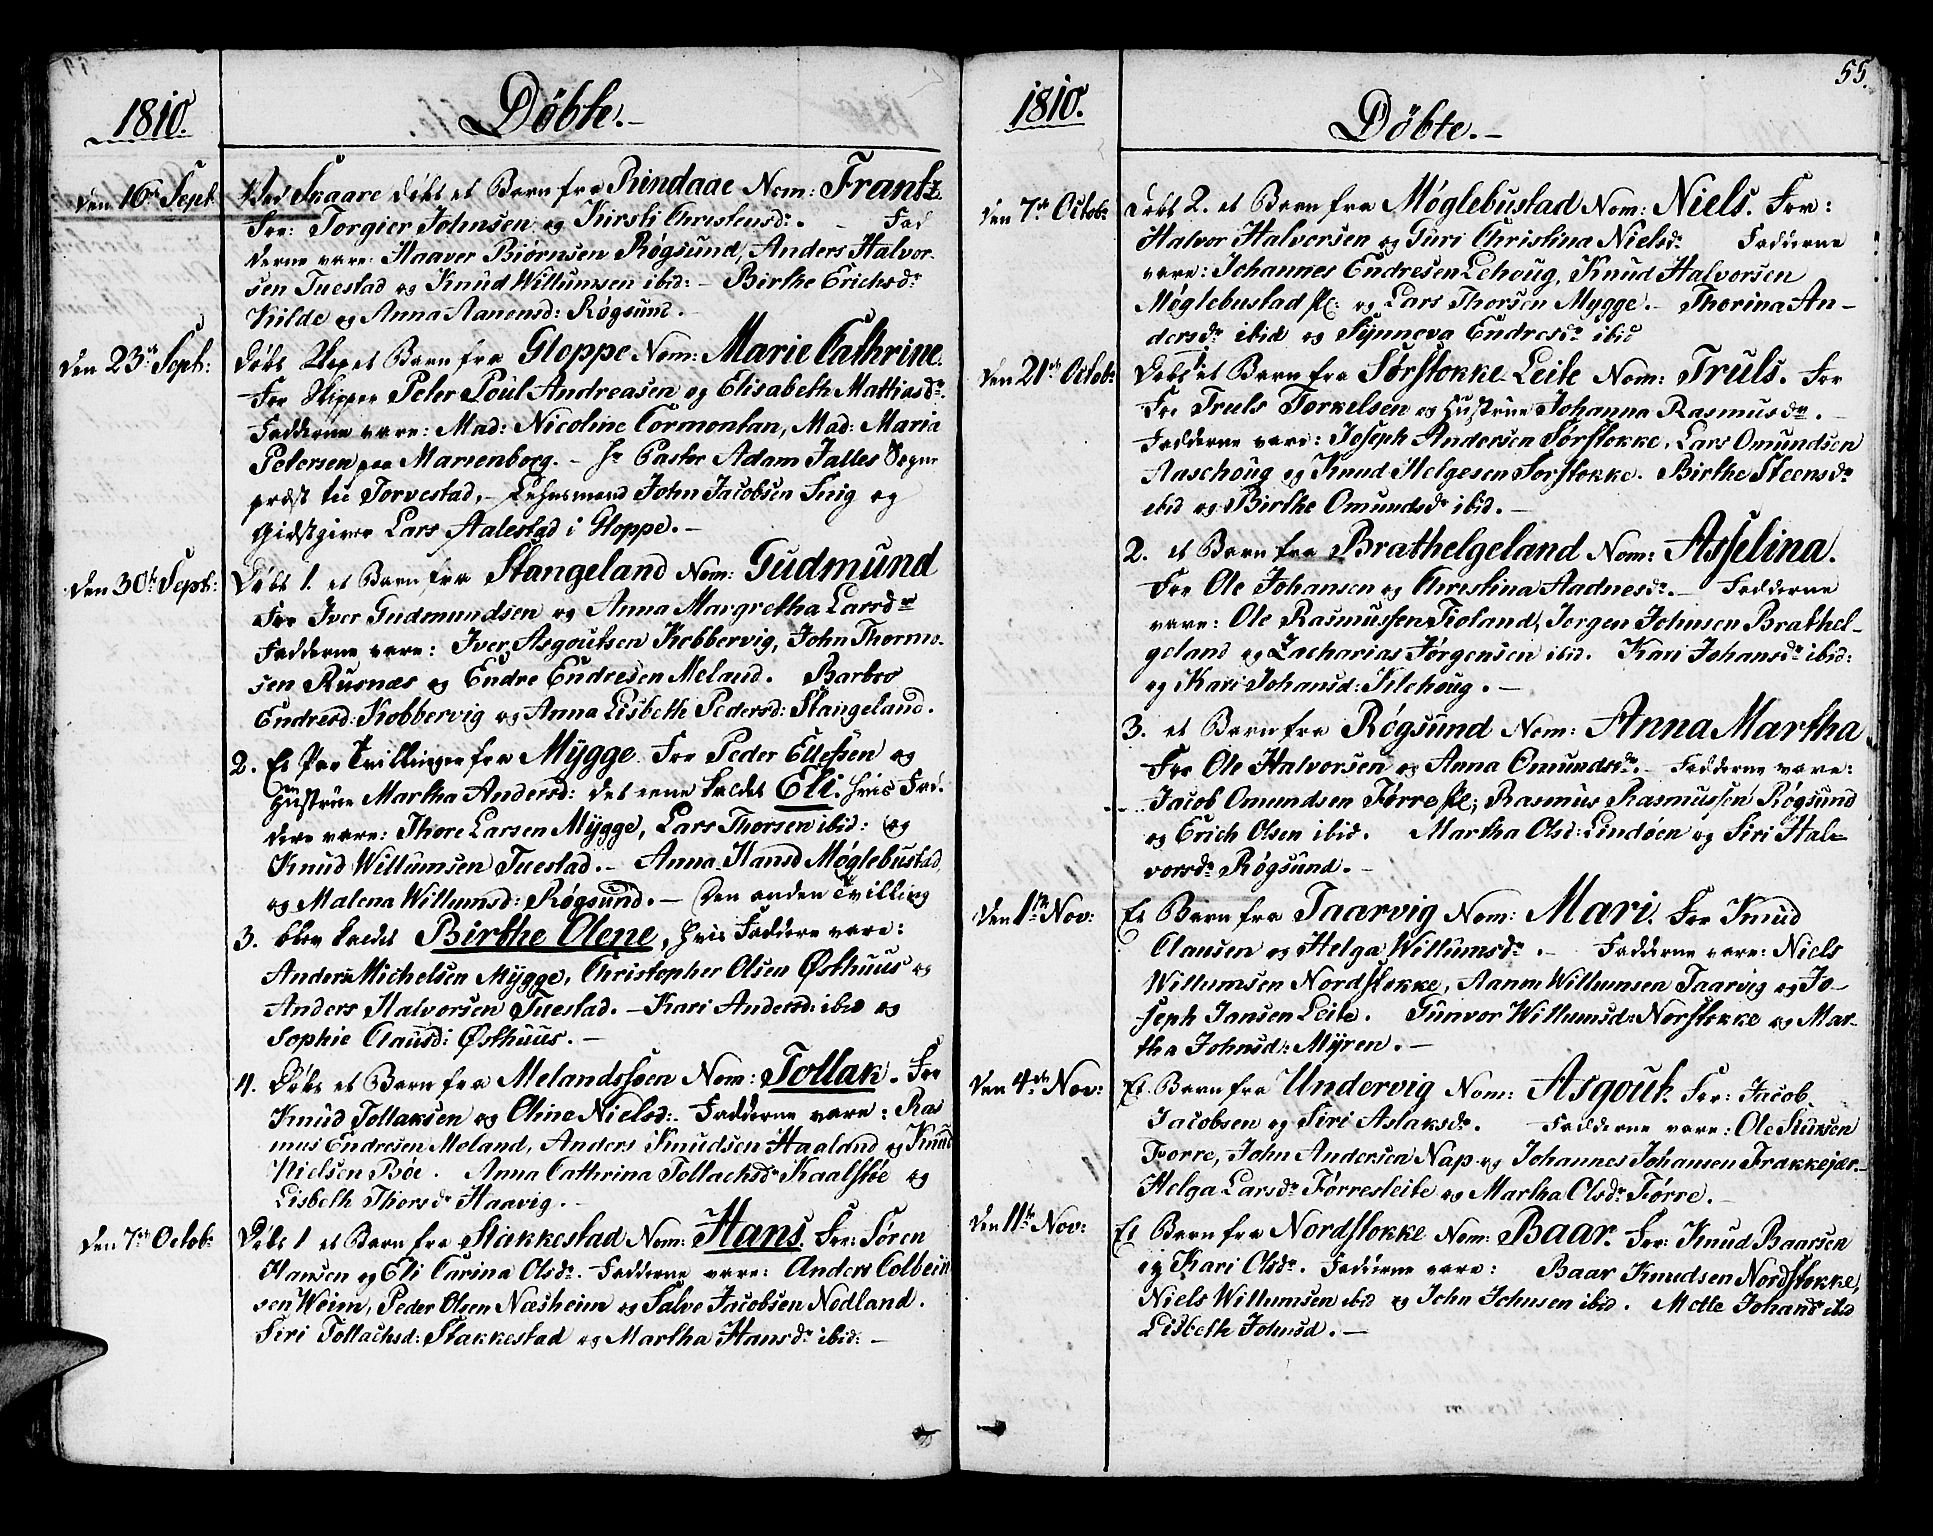 1810.
Döbte.
den 16de Sept
Ved Skaare döbt et Barn fra Rindaae Nom: Frantz.
For: Torgier Johnsen og Kirsti Christensdr. - Fad
derne vare: Haaver Biørnsen Røgsund, Anders Halvor-
sen Tuestad og Knud Willumsen ibid: - Birthe Erichsdr
Kilde og Anna Aanensd: Røgsund.
den 23de Sept:
Döbt et Barn fra Gloppe Nom: Marie Cathrine.
For Skipper Peter Poul Andreasen og Elisabeth Mathiasdr.
Fadderne vare: Mad: Nicoline Cormontan, Mad: Maria
Petersen paa Marienborg. - Hr Pastor Adam Jalles Sogne
præst til Torvestad, - Lehnsmand John Jacobsen Snig og
Giæstgiver Lars Aalestad i Gloppe. -
den 30te Sept:
Döbt 1. et Barn fra Stangeland Nom: Gudmund
For Iver Gudmundsen og Anna Margretha Larsdr
Fadderne vare: Iver Asgoutsen Kobbervig, John Thormo-
sen Rusnæs og Endre Endresen Meland. Barbro
Endresd: Kobbervig og Anna Lisbeth Pedersd: Stangeland.
2. Et Par Tvillinger fra Mygge For Peder Ellefsen og
Hustrue Martha Andersd: det eene kaldet Eli. hvis Fad-
dere vare: Thore Larsen Mygge, Lars Thorsen ibid: og
Knud Willumsen Tuestad. - Anna Hansd Møglebustad,
og Malena Willumsd: Røgsund. - Den anden Tvilling
3. blev kaldet Birthe Olene, hvis Faddere vare:
Anders Michelsen Mygge, Christopher Olsen Østhuus og
Anders Halvorsen Tuestad. - Kari Andersd: ibid og
Sophie Clausd: Østhuus. -
4. Döbt et Barn fra Melandssøen Nom: Tollak. For
Knud Tollaksen og Oline Nielsd:. Fadderne vare: Ras
mus Endresen Meland, Anders Knudsen Haaland og Knud
Nielsen Bøe. Anna Cathrina Tollachsdr Kaalstøe og
Lisbeth Thorsdr Haavig. -
den 7de Octobr
Döbt 1 et Barn fra Stakkestad Nom: Hans. For: Søren
Hansen og Eli Carina Olsdr. Fadderne vare: Anders Colbein
sen Weim, Peder Olsen Næsheim og Salve Jacobsen Nedland.
Siri Tollachsd: Stakkestad og Martha Hansdr ibid: -
55.
1810.
Döbte.
den 7de Octobr
Döbt 2. et Barn fra Møglebustad Nom: Niels. For:
Halvor Halvorsen og Guri Christina Nielsdr Fadderne
vare: Johannes Endresen Lehoug, Knud Halvorsen
Møglebustad og Lars Thorsen Mygge. - Thorina An-
dersdr ibid og Synneva Endresdr ibid
den 21de Octobr
Döbt et Barn fra Sørstokke Leite Nom: Truls. For
For Truls Torkelsen og Hustrue Johanna Rasmusdr. -
Fadderne vare: Joseph Andersen Sørstokke, Lars Omundsen
Aaschoug og Knud Helgesen Sørstokke. Birthe Steensdr
ibid og Birthe Omundsdr ibid. -
2. et Barn fra Brathelgeland Nom: Asselina.
For Ole Johansen og Christina Aadnesdr. - Fadderne
vare: Ole Rasmussen Fioland, Jørgen Johnsen Brathel-
geland og Zacharias Jørgensen ibid. Kari Johansdr ibid:
og Kari Johansd: Silehoug. -
3. et Barn fra Røgsund Nom: Anna Martha
For Ole Halvorsen og Anna Omundsdr. - Fadderne vare:
Jacob Omundsen Førre, Rasmus Rasmussen Røgsund
og Erich Olsen ibid. Martha Olsd: Lindøen og Siri Hal-
vorsdr Røgsund. -
den 1te Nov:
Et Barn fra Taarvig Nom: Mari. For Knud
Clausen og Helga Willumsdr. - Fadderne vare: Niels
Willumsen Nordstokke, Aanen Willumsen Taarvig og Jo-
seph Jansen Leite. Gunvor Willumsd: Norstokke og Mar-
tha Johnsd: Myren. -
den 4de Nov:
Et Barn fra Undervig Nom: Asgout. For: Jacob
Jacobsen og Siri Aslaksdr. Fadderne vare: Ole Siursen
Førre, John Andersen Nap og Johannes Johansen Frakkejær.
Helga Larsdr Førresleite og Martha Olsdr Førre. -
den 11te Nov:
Et Barn fra Nordstokke Nom: Baar. For: Knud Baarsen
og Kari Olsdr. Fadderne vare: Baar Knudsen Nordstokke,
Niels Willumsen ibid og John Johnsen ibid. Mette Johansd ibid
Lisbeth Johnsd. -